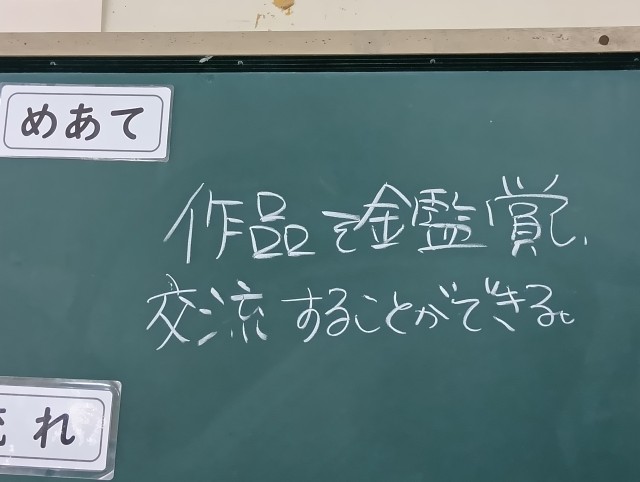 めあて
作品を鑑賞し、
交流することができる。
れ